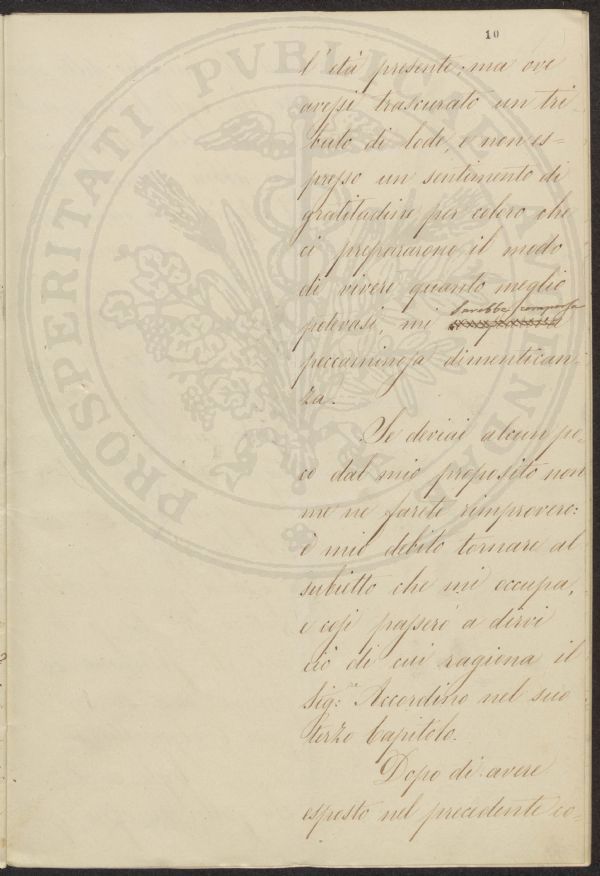 10
l'età presente; ma ove
avessi trascurato un tri-
buto di lode, e non es=
presso un sentimento di
gratitudine per coloro che
ci prepararono il modo
di vivere quanto meglio
potevasi, mi sarebbe comparsa
peccaminosa dimentican-
za.
Se deviai alcun po-
co dal mio proposito non
me ne farete rimprovero:
è mio debito tornare al
subietto che mi occupa,
e così passerò a dirvi
ciò di cui ragiona il
Sig: Accordino nel suo
terzo Capitolo.
Dopo di avere
esposto nel precedente co=
PROSPERITATI PUBLICAE AUGENDAE